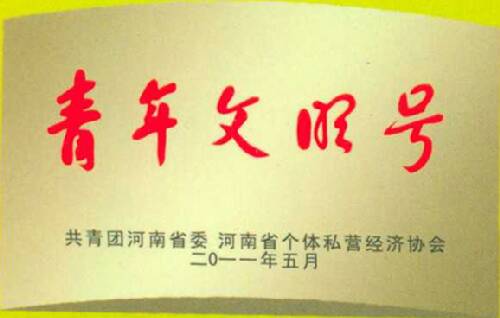 青年文明号
共青团河南省委 河南省个体私营经济协会
二0一一年五月